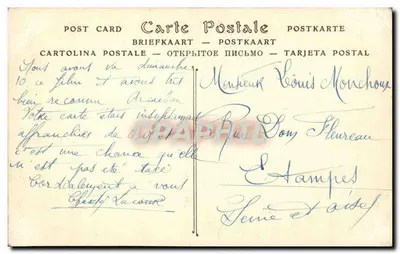 POST CARD Carte Postale POSTKARTE
BRIEFKAART — POSTKAART
CARTOLINA POSTALE — ОТКРЫТОЕ ПИСЬМО — TARJETA POSTAL
Nous avons vu dimanche
10 ce film et avons très
bien reconnu
Votre carte étais insuffisamt
affranchies de
c'est une chance qu'elle
n'est pas été taxé
Cordialement à vous
Lacour
Monsieur Léonis Monchoux
Rue Dom Fleureau
Etampes
Seine et Oise